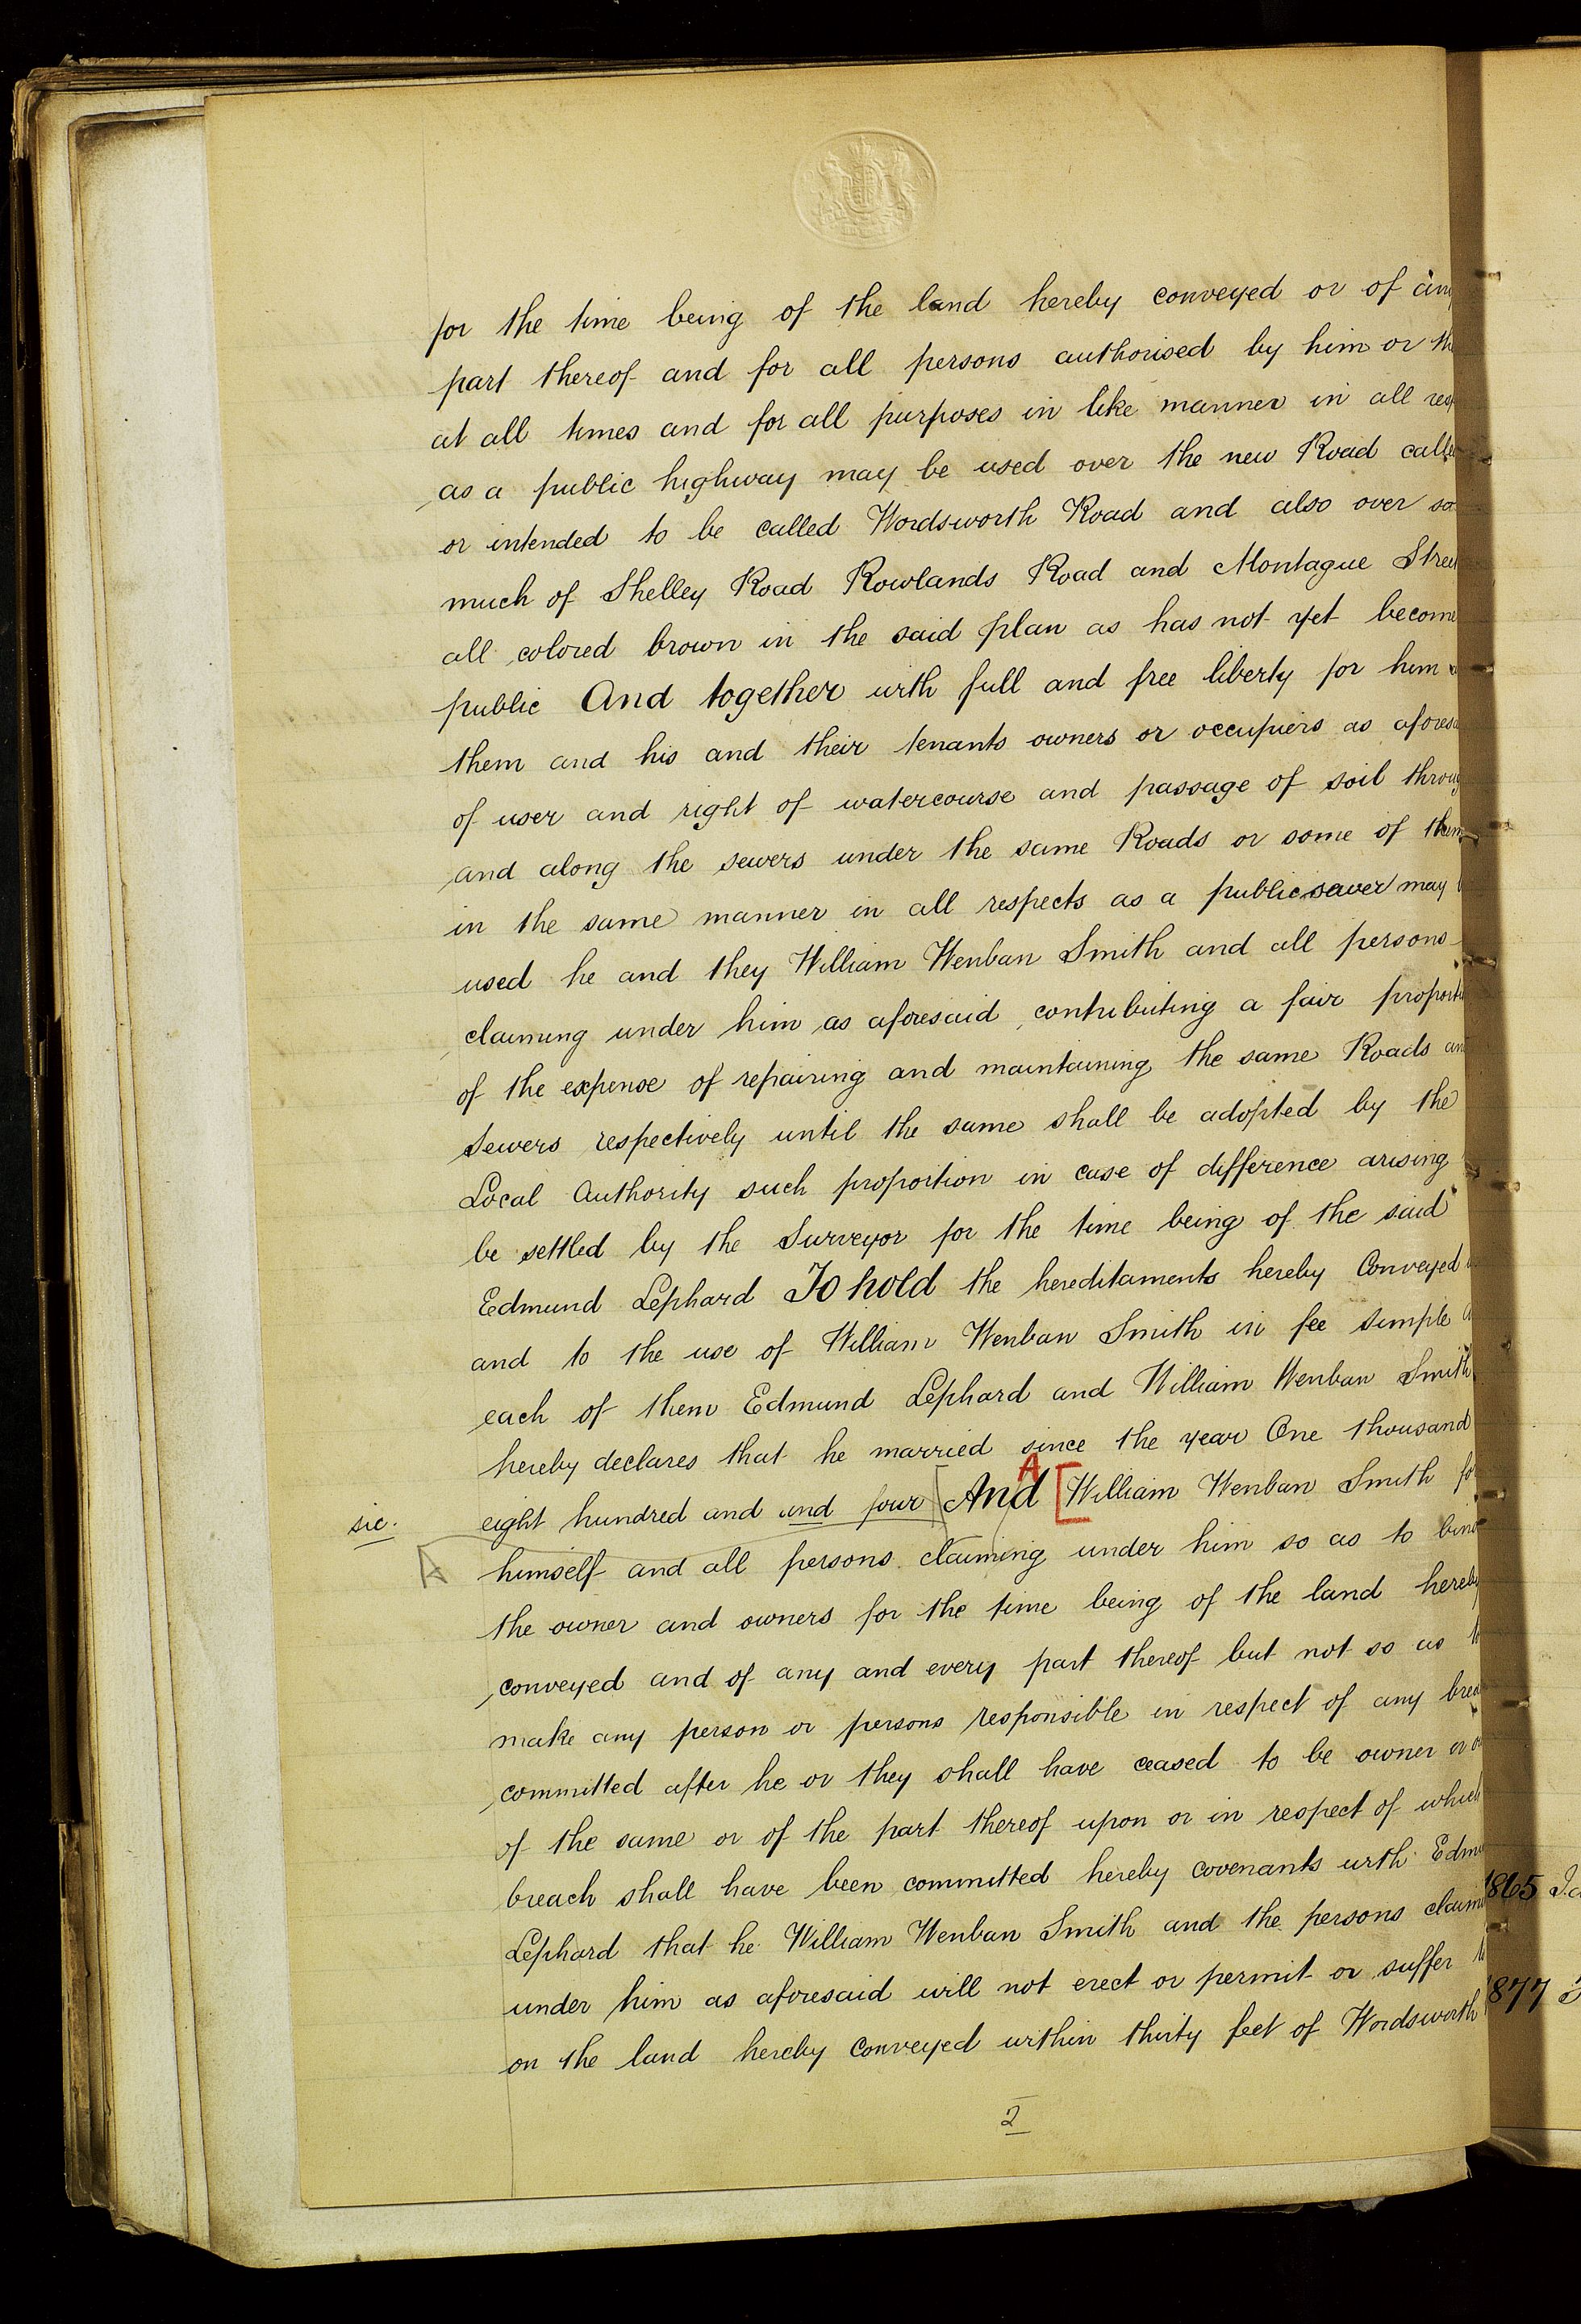 for the time being of the land hereby conveyed or of any
part thereof and for all persons authorised by him or th
at all times and for all purposes in like manner in all res
as a public highway may be used over the new Road called
or intended to be called Wordsworth Road and also over so
much of Shelley Road Rowlands Road and Montague Street
all colored brown in the said plan as has not yet become
public And together with full and free liberty for him
them and his and their tenants owners or occupiers as aforesa
of user and right of watercourse and passage of soil throug
and along the sewers under the same Roads or some of them
in the same manner in all respects as a public sewer may
used he and they William Wenban Smith and all persons
claiming under him as aforesaid contributing a fair proporti
of the expense of repairing and maintaining the same Roads an
Sewers respectively until the same shall be adopted by the
Local Authority such proportion in case of difference arising
be settled by the Surveyor for the time being of the said
Edmund Lephard To hold the hereditaments hereby Conveyed
and to the use of William Wenban Smith in fee simple
each of them Edmund Lephard and William Wenban Smith
hereby declares that he married since the year One thousand
A
sic. eight hundred and and four [And [William Wenban Smith fo
A himself and all persons claiming under him so as to bind
the owner and owners for the time being of the land hereby
conveyed and of any and every part thereof but not so as t
make any person or persons responsible in respect of any brea
committed after he or they shall have ceased to be owner or o
of the same or of the part thereof upon or in respect of which
breach shall have been committed hereby covenants with Edm
Lephard that he William Wenban Smith and the persons claimi
under him as aforesaid will not erect or permit or suffer t
on the land hereby conveyed within thirty feet of Wordsworth
2
1865
1877